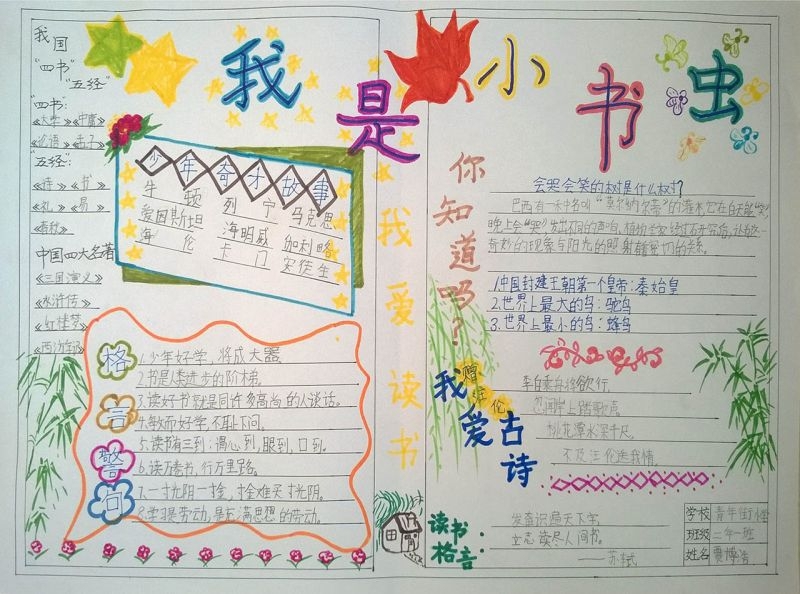 我是小书虫
我国
"四书"
"五经"
"四书：
《大学》《中庸》
《论语》《孟子》
"五经"：
《诗》《书》
《礼》《易》
《春秋》
中国四大名著
《三国演义》
《水浒传》
《红楼梦》
《西游记》
少年奇才故事
牛顿 列宁 马克思
爱因斯坦 海明威 伽利略
海伦 卡门 安徒生
格言警句
1.少年好学，将成大器
2.书是人类进步的阶梯。
3.读好书就是同许多高尚的人谈话。
4.敏而好学，不耻下问。
5.读书有三到：心到，眼到，口到。
6.读万卷书，行万里路。
7.一寸光阴一寸金，寸金难买寸光阴。
8.学习是劳动，是充满思想的劳动。
我爱读书
你知道吗？
会哭会笑的树是什么树？
巴西有一种名叫"莫尔纳尔蒂"的灌木，它在白天能"笑"，
晚上会"哭"，发出不同的声响，植物学家经过不断究后，认为这一
奇妙的现象与阳光的照射有密切的关系。
1.中国封建王朝第一个皇帝：秦始皇
2.世界上最大的鸟：鸵鸟
3.世界上最小的鸟：蜂鸟
我爱古诗
赠汪伦
李白乘舟将欲行，
忽闻岸上踏歌声。
桃花潭水深千尺，
不及汪伦送我情。
读书格言：
发奋识遍天下字，
立志读尽人间书。
——苏轼
学校 青年街小学
班级 二年一班
姓名 贾博浩